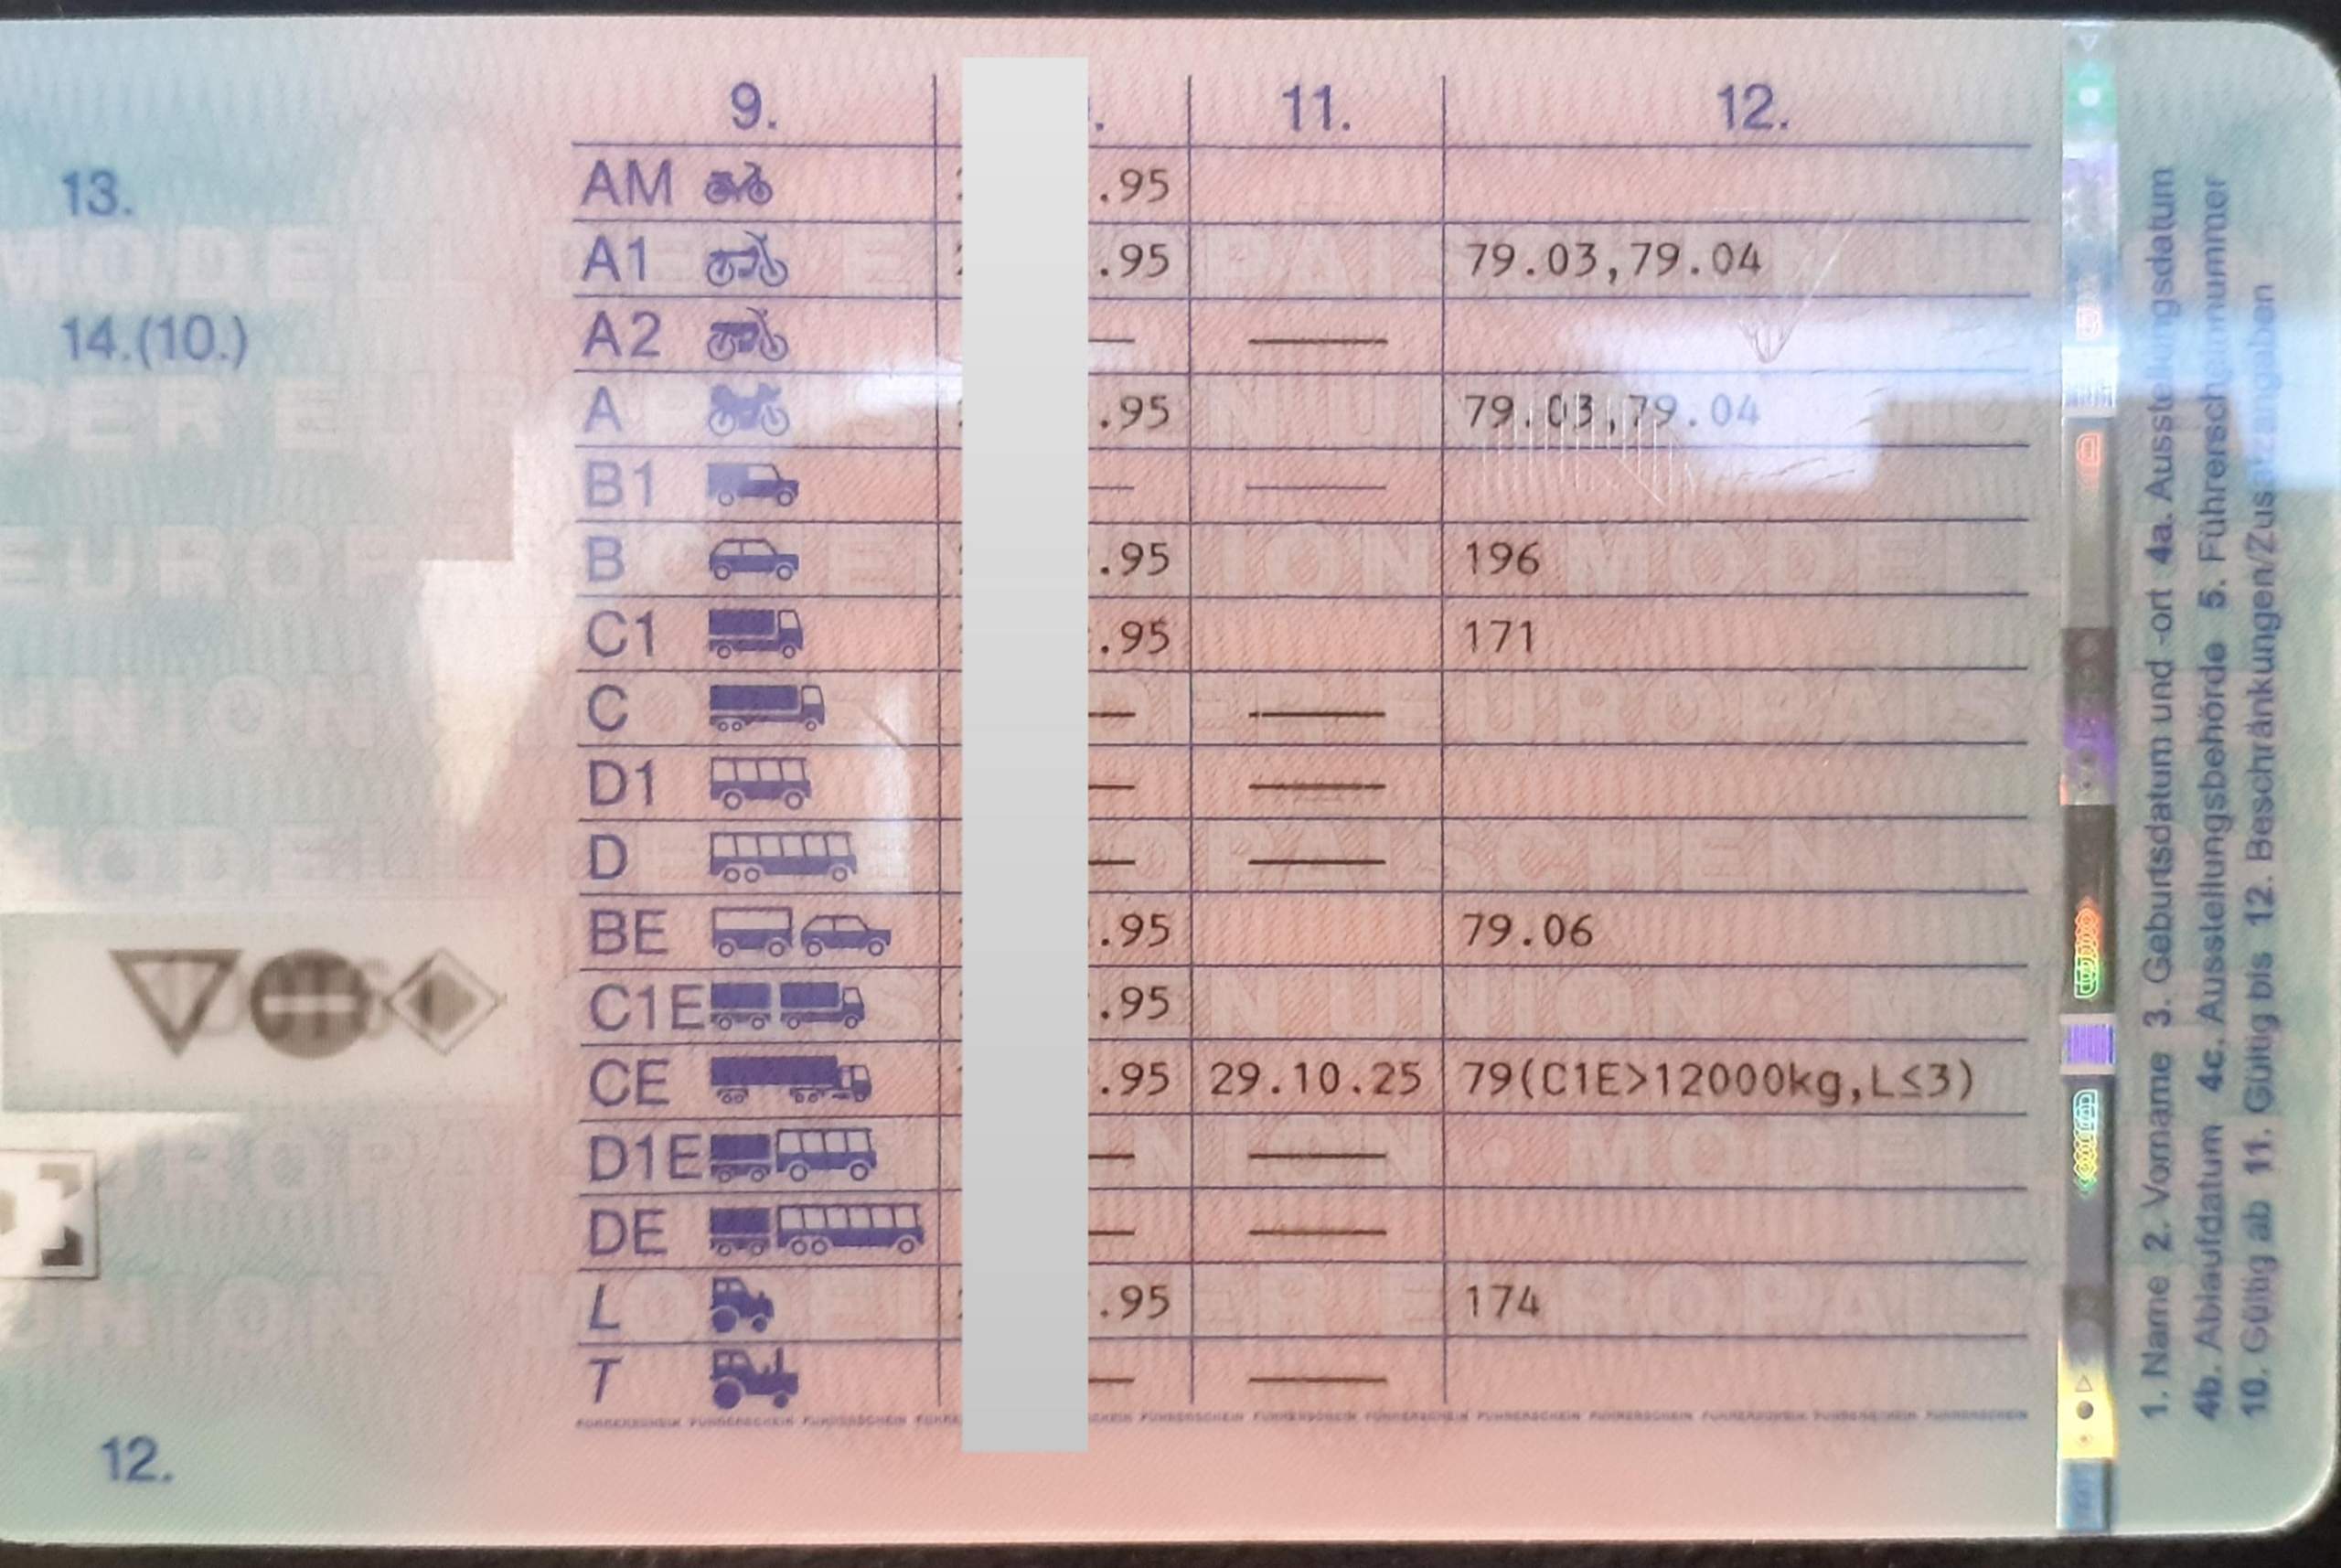 9. . 11. 12.
13.
14.(10.)
AM .95
A1 .95 79.03,79.04
A2 — —
A .95 79.03,79.04
B1 — —
B .95 196
C1 .95 171
C — —
D1 — —
D — —
BE .95 79.06
C1E .95
CE .95 29.10.25 79(C1E>12000kg,L≤3)
D1E — —
DE — —
L .95 174
T — —
12.
1. Name 2. Vorname 3. Geburtsdatum und -ort 4a. Ausstellungsdatum
4b. Ablaufdatum 4c. Ausstellungsbehörde 5. Führerscheinnummer
10. Gültig ab 11. Gültig bis 12. Beschränkungen/Zusatzangaben